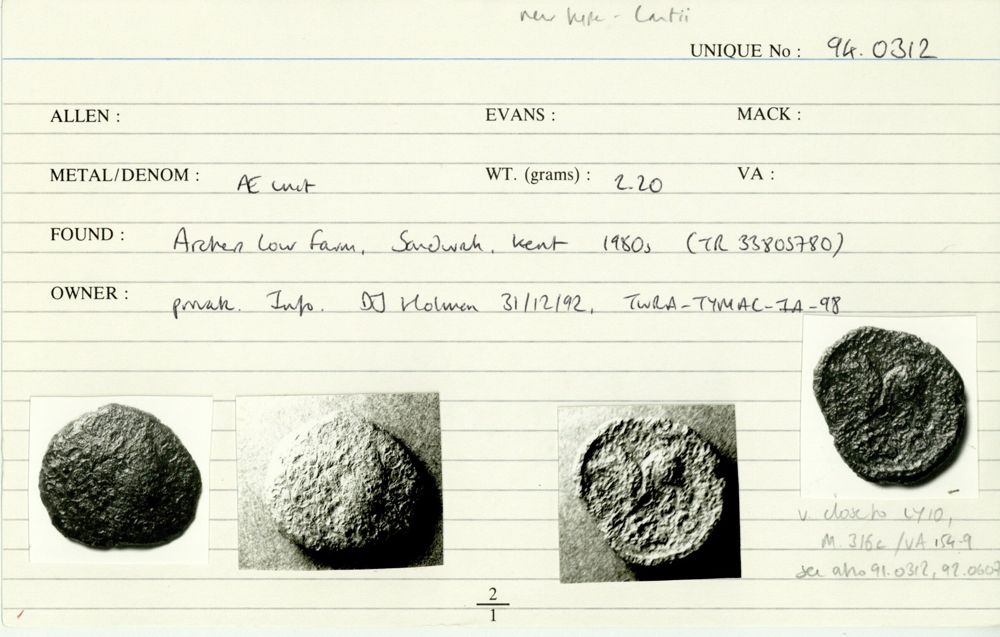 new type - Cantii
UNIQUE No : 94.0312
ALLEN : EVANS : MACK :
METAL/DENOM : Æ unit WT. (grams) : 2.20 VA :
FOUND : Archers Low Farm, Sandwich, Kent 1980s (TR 33805780)
OWNER : private. Info. DJ Holman 31/12/92, TWRA-TYMAC-IA-98
v. close to LY10,
M.316c/VA 154-9
see also 91.0312, 92.0607
2
1